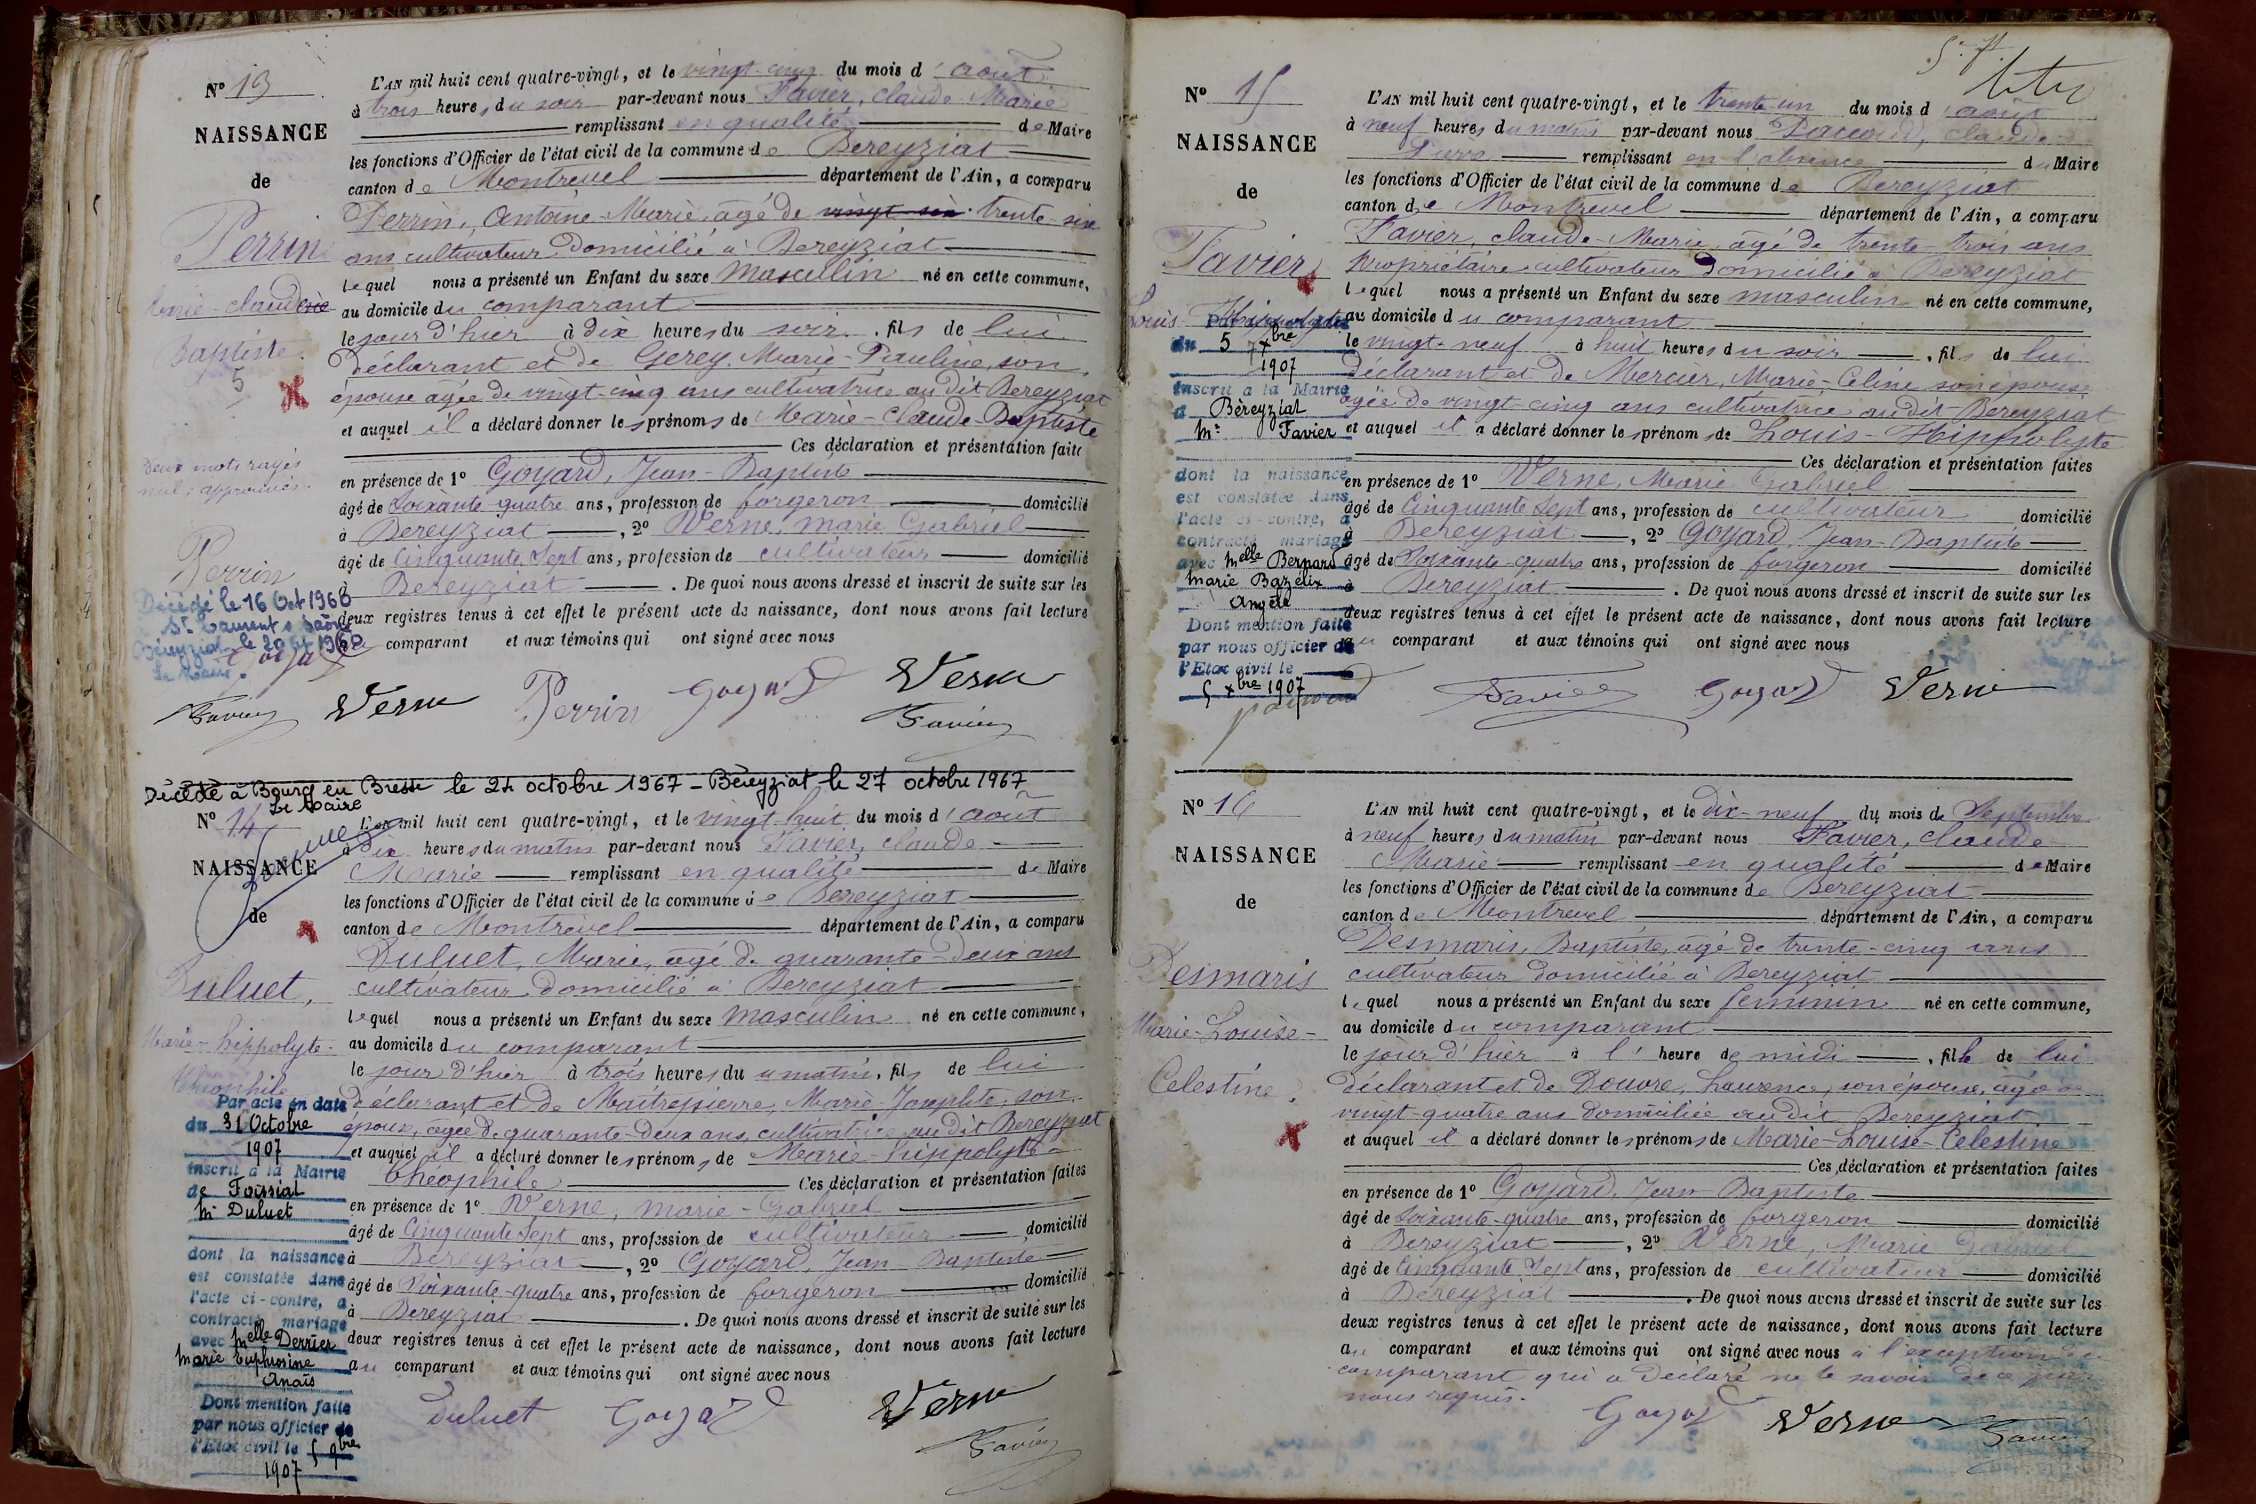 N° 13
NAISSANCE
de
Perrin
Marie-Claude
Baptiste
5
Deux mots rayés
nuls approuvés.
Perrin
Goyard
Favier
Décédé le 16 Oct 1960
St Laurent s Saône
Béreyziat le 20 Oct 1960
Le Maire.
L'AN mil huit cent quatre-vingt, et le vingt-cinq du mois d'août
à trois heures du soir par-devant nous Favier, Claude Marie
remplissant en qualité de Maire
les fonctions d'Officier de l'état civil de la commune de Bereyziat
canton de Montrevel département de l'Ain, a comparu
Perrin, Antoine-Marie, âgé de vingt six trente-six
ans cultivateur domicilié à Bereyziat
lequel nous a présenté un Enfant du sexe masculin né en cette commune,
au domicile du comparant
le jour d'hier à dix heures du soir, fils de lui
déclarant et de Gerey, Marie-Pauline, son
épouse agée de vingt-cinq ans cultivatrice audit Bereyziat
et auquel il a déclaré donner les prénoms de Marie-Claude-Baptiste
Ces déclaration et présentation faites
en présence de 1° Goyard, Jean-Baptiste
âgé de Soixante-quatre ans, profession de forgeron domicilié
à Bereyziat, 2° Verne, marie Gabriel
âgé de Cinquante Sept ans, profession de cultivateur domicilié
à Bereyziat. De quoi nous avons dressé et inscrit de suite sur les
deux registres tenus à cet effet le présent acte de naissance, dont nous avons fait lecture
comparant et aux témoins qui ont signé avec nous
Verne Perrin Goyard Verne
Favier
Décédé à Bourg en Bresse le 24 octobre 1967 - Béreyziat le 27 octobre 1967
Le Maire
N° 14
NAISSANCE
de
Duluet,
Marie-hippolyte-
théophile
Par acte en date
du 31 Octobre
1907
inscrit à la Mairie
de Foissiat
Mr Duluet
dont la naissance
est constatée dans
l'acte ci-contre, a
contracté mariage
avec Melle Derrier
Marie Euphrosine
Anaïs
Dont mention faite
par nous officier de
l'Etat civil le 5 9bre
1907
L'AN mil huit cent quatre-vingt, et le vingt-huit du mois d'août
à dix heures du matin par-devant nous Favier, Claude
Marie remplissant en qualité de Maire
les fonctions d'Officier de l'état civil de la commune de Bereyziat
canton de Montrevel département de l'Ain, a comparu
Duluet, Marie, âgé de quarante-deux ans
cultivateur domicilié à Bereyziat
lequel nous a présenté un Enfant du sexe masculin né en cette commune,
au domicile du comparant
le jour d'hier à trois heures du matin, fils de lui
déclarant et de Maîtrepierre, Marie-Josephte, son
épouse, agée de quarante-deux ans, cultivatrice audit Bereyziat
et auquel il a déclaré donner les prénoms de Marie-hippolyte-
théophile Ces déclaration et présentation faites
en présence de 1° Verne, marie-Gabriel
âgé de Cinquante Sept ans, profession de cultivateur domicilié
à Bereyziat, 2° Goyard, Jean-Baptiste
âgé de Soixante-quatre ans, profession de forgeron domicilié
à Bereyziat. De quoi nous avons dressé et inscrit de suite sur les
deux registres tenus à cet effet le présent acte de naissance, dont nous avons fait lecture
au comparant et aux témoins qui ont signé avec nous
Duluet Goyard Verne
Favier
N° 15
NAISSANCE
de
Favier,
Louis-Hippolyte
Par acte en date
du 5 7bre
1907
inscrit à la Mairie
d Béreyziat
Mr Favier
dont la naissance
est constatée dans
l'acte ci-contre, a
contracté mariage
avec Melle Bernard
Marie Bazélix
Angèle
Dont mention faite
par nous officier de
l'Etat civil le
5 xbre 1907
L'AN mil huit cent quatre-vingt, et le trente-un du mois d'août
à neuf heures du matin par-devant nous Pacoud, Claude-
remplissant en l'absence du Maire
les fonctions d'Officier de l'état civil de la commune de Bereyziat
canton de Montrevel département de l'Ain, a comparu
Favier, Claude-Marie, âgé de trente-trois ans
propriétaire cultivateur domicilié à Bereyziat
lequel nous a présenté un Enfant du sexe masculin né en cette commune,
au domicile du comparant
le vingt-neuf à huit heures du soir, fils de lui
déclarant et de Mercier, Marie-Celine son épouse
agée de vingt-cinq ans cultivatrice audit-Bereyziat
et auquel il a déclaré donner les prénoms de Louis-Hippolyte
Ces déclaration et présentation faites
en présence de 1° Verne, Marie Gabriel
âgé de Cinquante Sept ans, profession de cultivateur domicilié
à Bereyziat, 2° Goyard, Jean-Baptiste
âgé de Soixante-quatre ans, profession de forgeron domicilié
à Bereyziat. De quoi nous avons dressé et inscrit de suite sur les
deux registres tenus à cet effet le présent acte de naissance, dont nous avons fait lecture
au comparant et aux témoins qui ont signé avec nous
Favier Goyard Verne
N° 16
NAISSANCE
de
Desmaris
Marie-Louise-
Celestine,
L'AN mil huit cent quatre-vingt, et le dix-neuf du mois de Septembre
à neuf heures du matin par-devant nous Favier, Claude
Marie remplissant en qualité de Maire
les fonctions d'Officier de l'état civil de la commune de Bereyziat
canton de Montrevel département de l'Ain, a comparu
Desmaris, Baptiste, âgé de trente-cinq ans
cultivateur domicilié à Bereyziat
lequel nous a présenté un Enfant du sexe féminin né en cette commune,
au domicile du comparant
le jour d'hier à l'heure de midi, fille de lui
déclarant et de Douvre, Laurence, son épouse, agée de
vingt-quatre ans domiciliée audit Bereyziat
et auquel il a déclaré donner les prénoms de Marie-Louise-Celestine
Ces déclaration et présentation faites
en présence de 1° Goyard, Jean-Baptiste
âgé de Soixante-quatre ans, profession de forgeron domicilié
à Bereyziat, 2° Verne, Marie Gabriel
âgé de Cinquante Sept ans, profession de cultivateur domicilié
à Bereyziat. De quoi nous avons dressé et inscrit de suite sur les
deux registres tenus à cet effet le présent acte de naissance, dont nous avons fait lecture
au comparant et aux témoins qui ont signé avec nous à l'exception du
comparant qui a déclaré ne le savoir de ce
nous requis.
Goyard Verne Favier